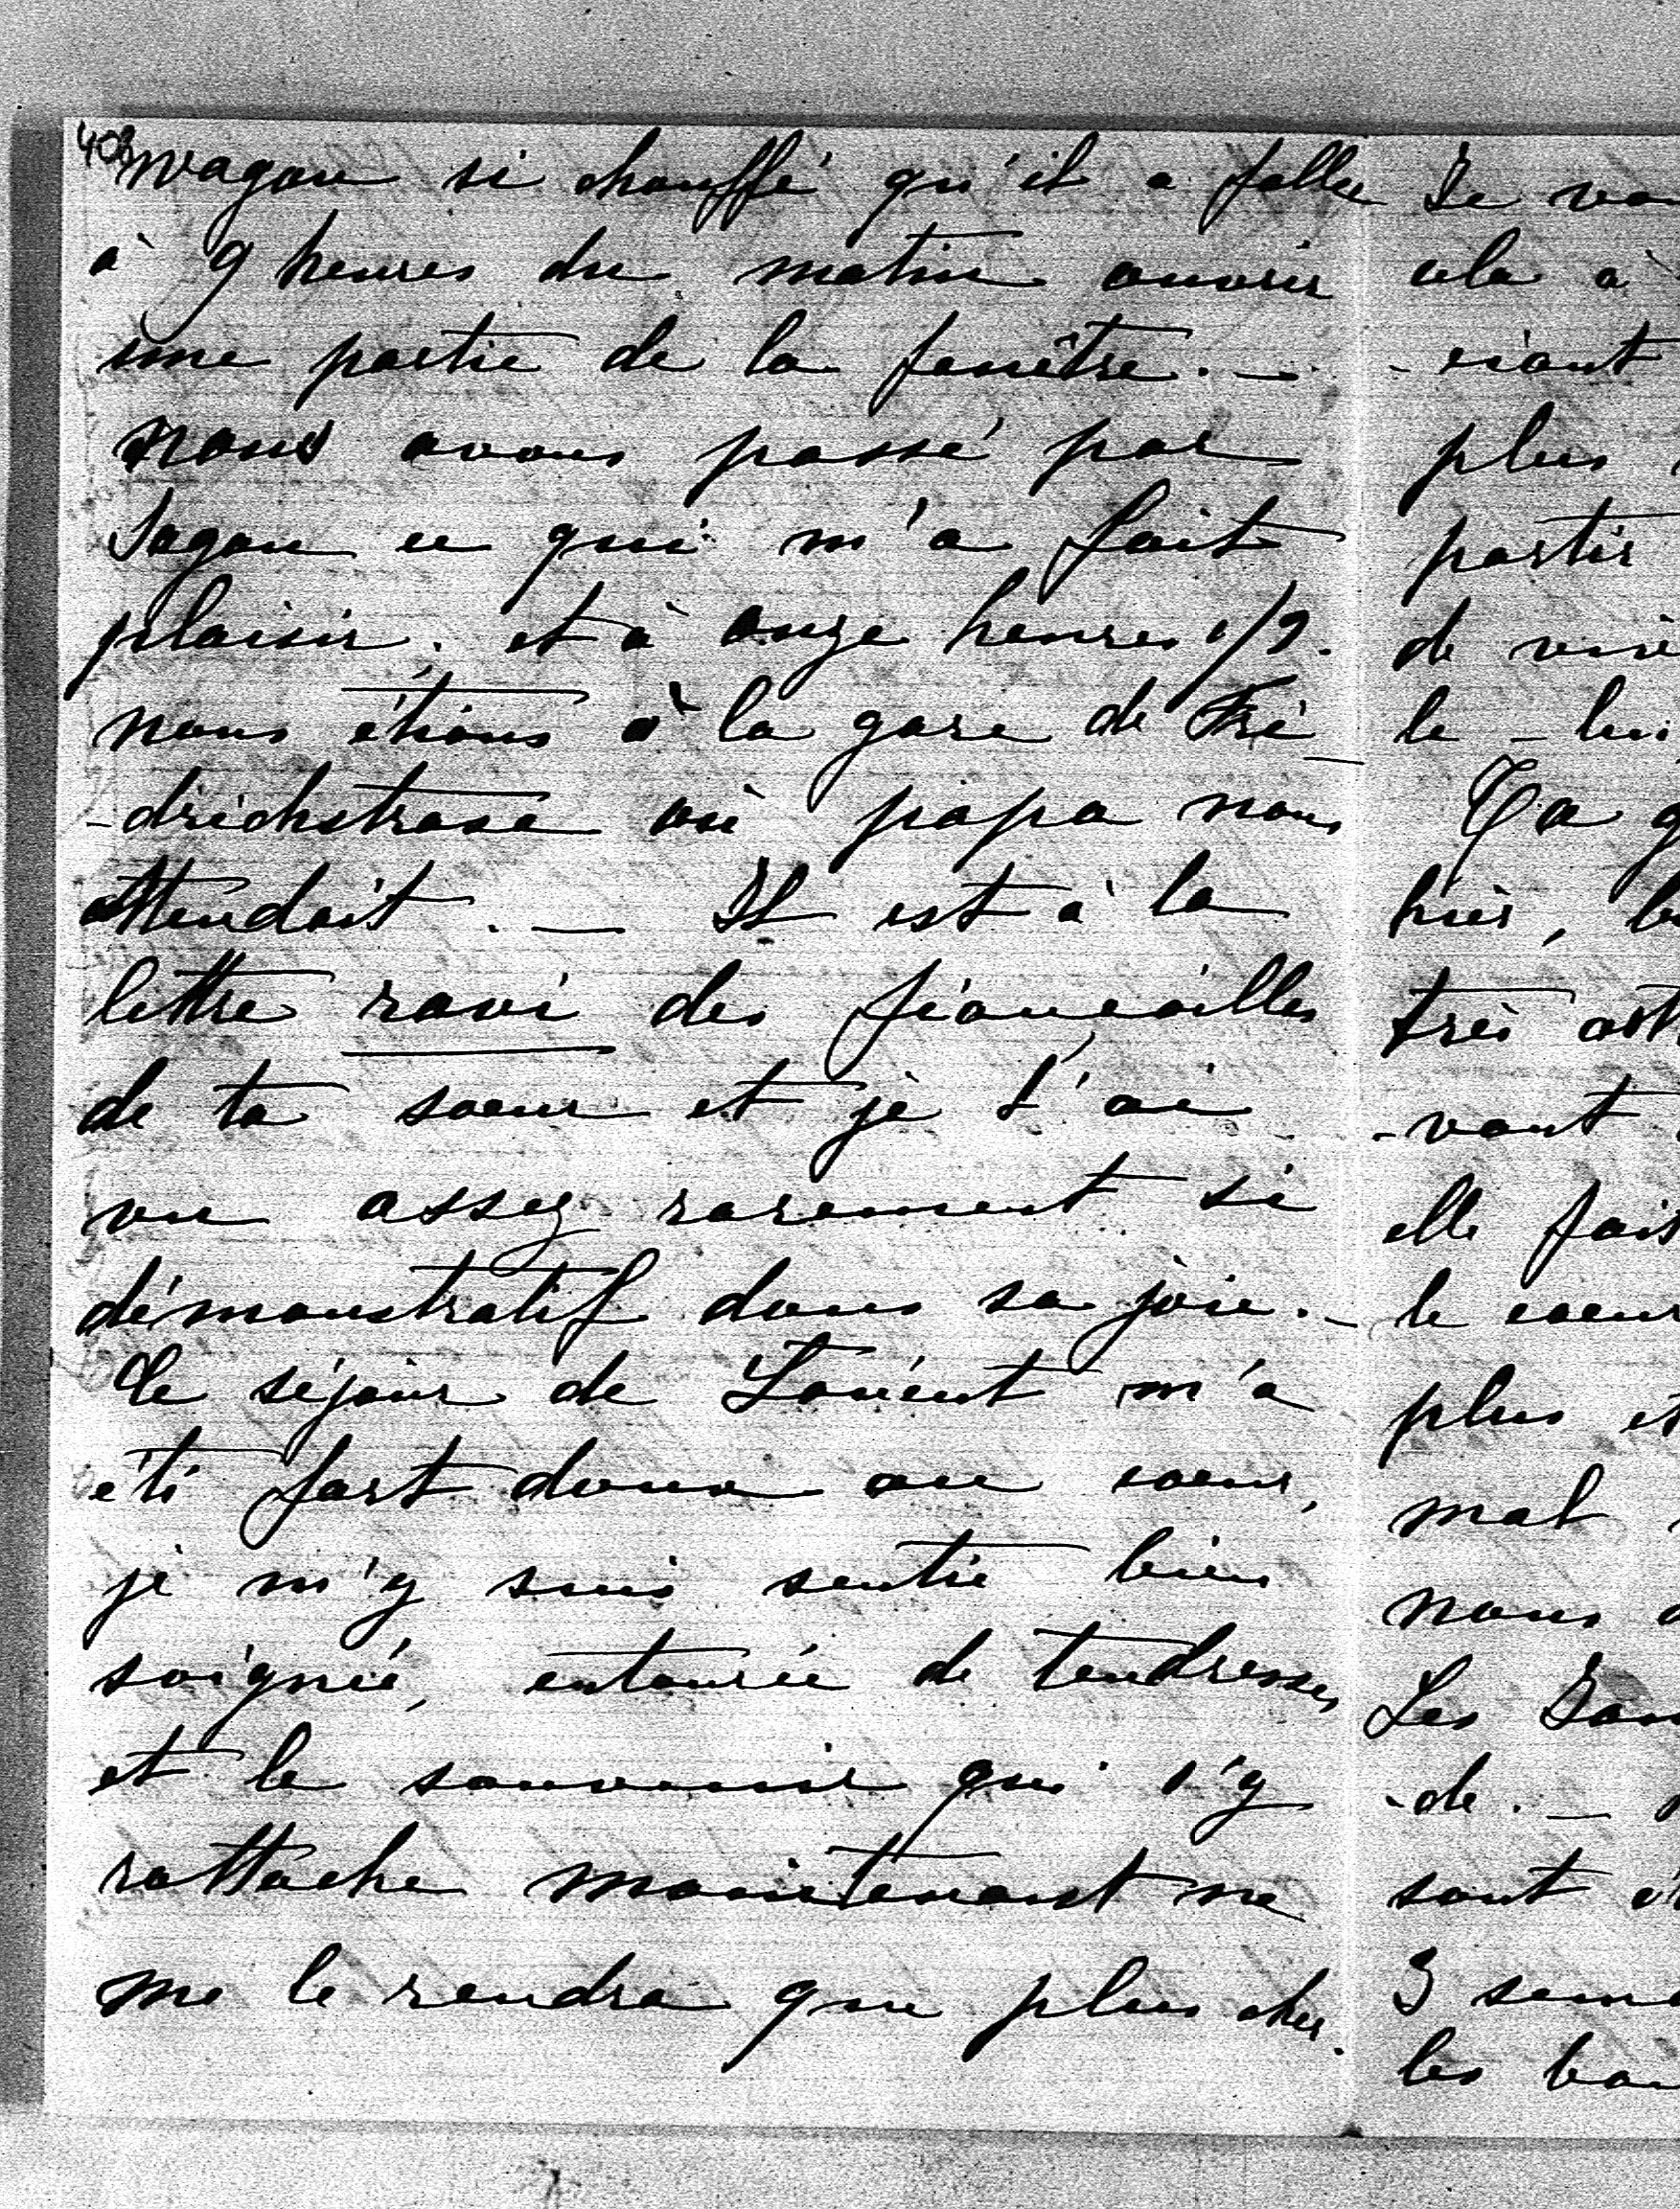 408
wagon si chauffé qu'il a fallu
à 9 heures du matin ouvrir
une partie de la fenêtre. —
nous avons passé par
Sagan ce qui m'a fait
plaisir. et à onze heures 1/2.
nous étions à la gare de Fri
-drichstrase où papa nous
attendait. — Il est à la
lettre ravi des fiancailles
de ta soeur et je l'ai
vu assez rarement si
démonstratif dans sa joie. —
Le séjour de m'a
été fort doux au coeur,
je m'y suis sentie bien
soignée, entourée de tendresses,
et le souvenir qui s'y
rattache maintenant ne
me le rendra que plus cher.
Je
cela à
-riant
plus
partir
de
le - lui
Ta
hier,
très
-vant
elle
le coeur
plus
mal
nous
Les
-de. —
sont
3
les